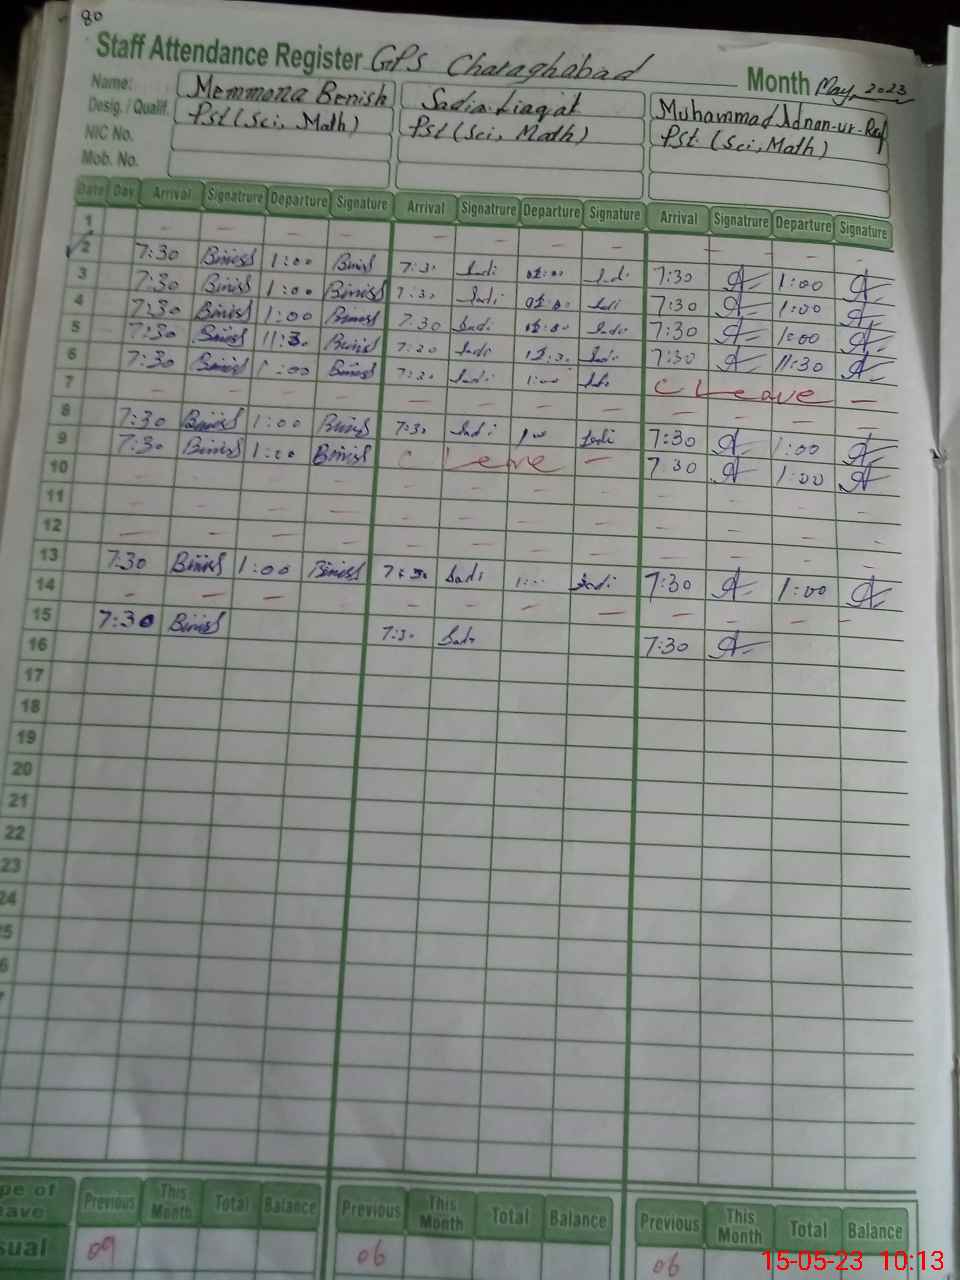 80
Staff Attendance Register GPS Charaghabad Month May, 2023
Name: Memmona Benish Sadia Liaqat Muhammad Adnan-ur-Raf
Desig. / Qualif. Pst (Sci, Math) Pst (Sci, Math) Pst. (Sci, Math)
NIC No.
Mob. No.
Date Day Arrival Signatrure Departure Signature Arrival Signatrure Departure Signature Arrival Signatrure Departure Signature
1 - - - - - - - - - - - -
2 7:30 Binish 1:00 Binish 7:30 Sadi 01:00 Sadi 7:30 1:00
3 7:30 Binish 1:00 Binish 7:30 Sadi 01:00 Sadi 7:30 1:00
4 7:30 Binish 1:00 Binish 7:30 Sadi Sadi 7:30 1:00
5 7:30 Binish 11:30 Binish 7:30 Sadi Sadi 7:30 11:30
6 7:30 Binish 1:00 Binish 7:30 Sadi 1:00 C Leave -
7 - - - - - - - - - - - -
8 7:30 Binish 1:00 Binish 7:30 Sadi Sadi 7:30 1:00
9 7:30 Binish 1:00 Binish C Leave - 7:30 1:00
10 - - - - - - - - - - - -
11 - - - - - - - - - - - -
12 - - - - - - - - - - - -
13 7:30 Binish 1:00 Binish 7:30 Sadi 1:00 Sadi 7:30 1:00
14 - - - - - - - - - - - -
15 7:30 Binish 7:30 Sadi 7:30
16
17
18
19
20
21
22
23
24
5
6
7
pe of eave Previous This Month Total Balance Previous This Month Total Balance Previous This Month Total Balance
sual 09 06 06
15-05-23 10:13